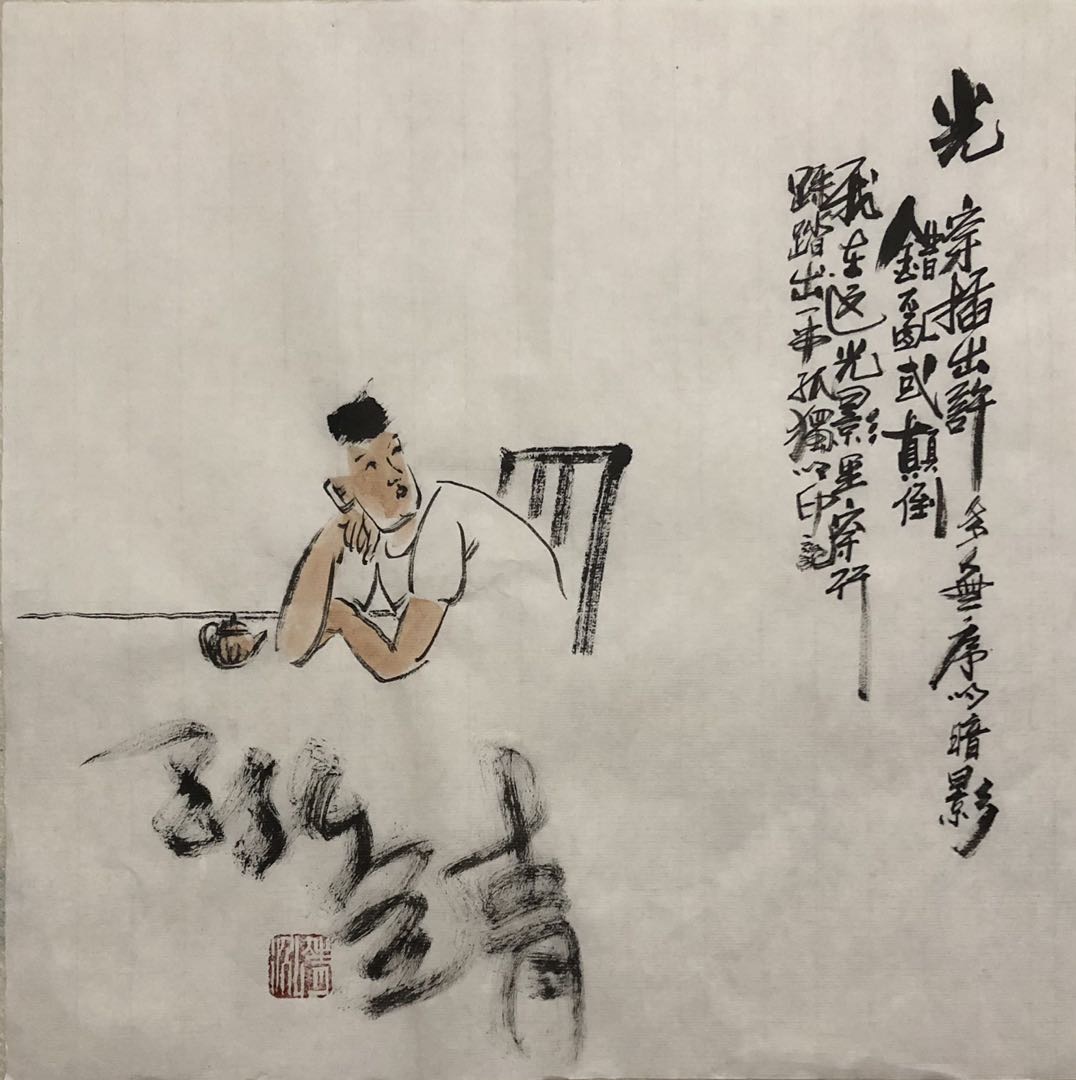 光
穿插出許多無序的暗影
錯亂或顛倒
我在这光影里穿行
踩踏出一串孤獨的印記